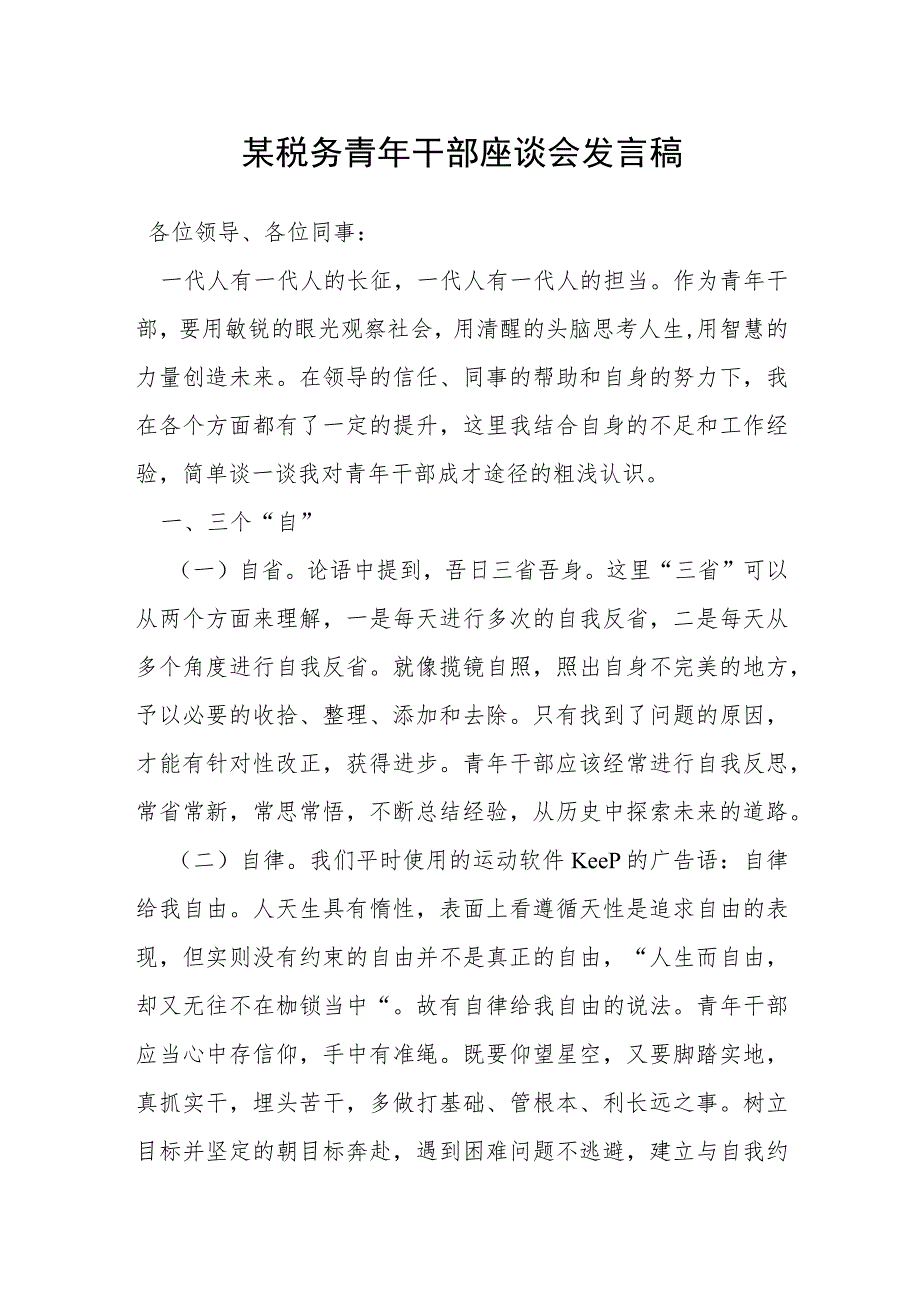 某税务青年干部座谈会发言稿
各位领导、各位同事：
一代人有一代人的长征，一代人有一代人的担当。作为青年干
部，要用敏锐的眼光观察社会，用清醒的头脑思考人生,用智慧的
力量创造未来。在领导的信任、同事的帮助和自身的努力下，我
在各个方面都有了一定的提升，这里我结合自身的不足和工作经
验，简单谈一谈我对青年干部成才途径的粗浅认识。
一、三个“自”
（一）自省。论语中提到，吾日三省吾身。这里“三省”可以
从两个方面来理解，一是每天进行多次的自我反省，二是每天从
多个角度进行自我反省。就像揽镜自照，照出自身不完美的地方，
予以必要的收拾、整理、添加和去除。只有找到了问题的原因，
才能有针对性改正，获得进步。青年干部应该经常进行自我反思，
常省常新，常思常悟，不断总结经验，从历史中探索未来的道路。
（二）自律。我们平时使用的运动软件 KeeP 的广告语：自律
给我自由。人天生具有惰性，表面上看遵循天性是追求自由的表
现，但实则没有约束的自由并不是真正的自由，“人生而自由，
却又无往不在枷锁当中“。故有自律给我自由的说法。青年干部
应当心中存信仰，手中有准绳。既要仰望星空，又要脚踏实地，
真抓实干，埋头苦干，多做打基础、管根本、利长远之事。树立
目标并坚定的朝目标奔赴，遇到困难问题不逃避，建立与自我约